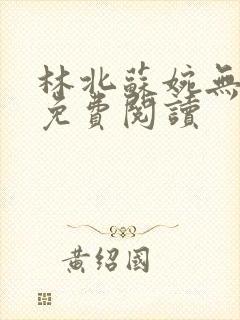 林北蘇婉無
免費閱讀
黃紹國